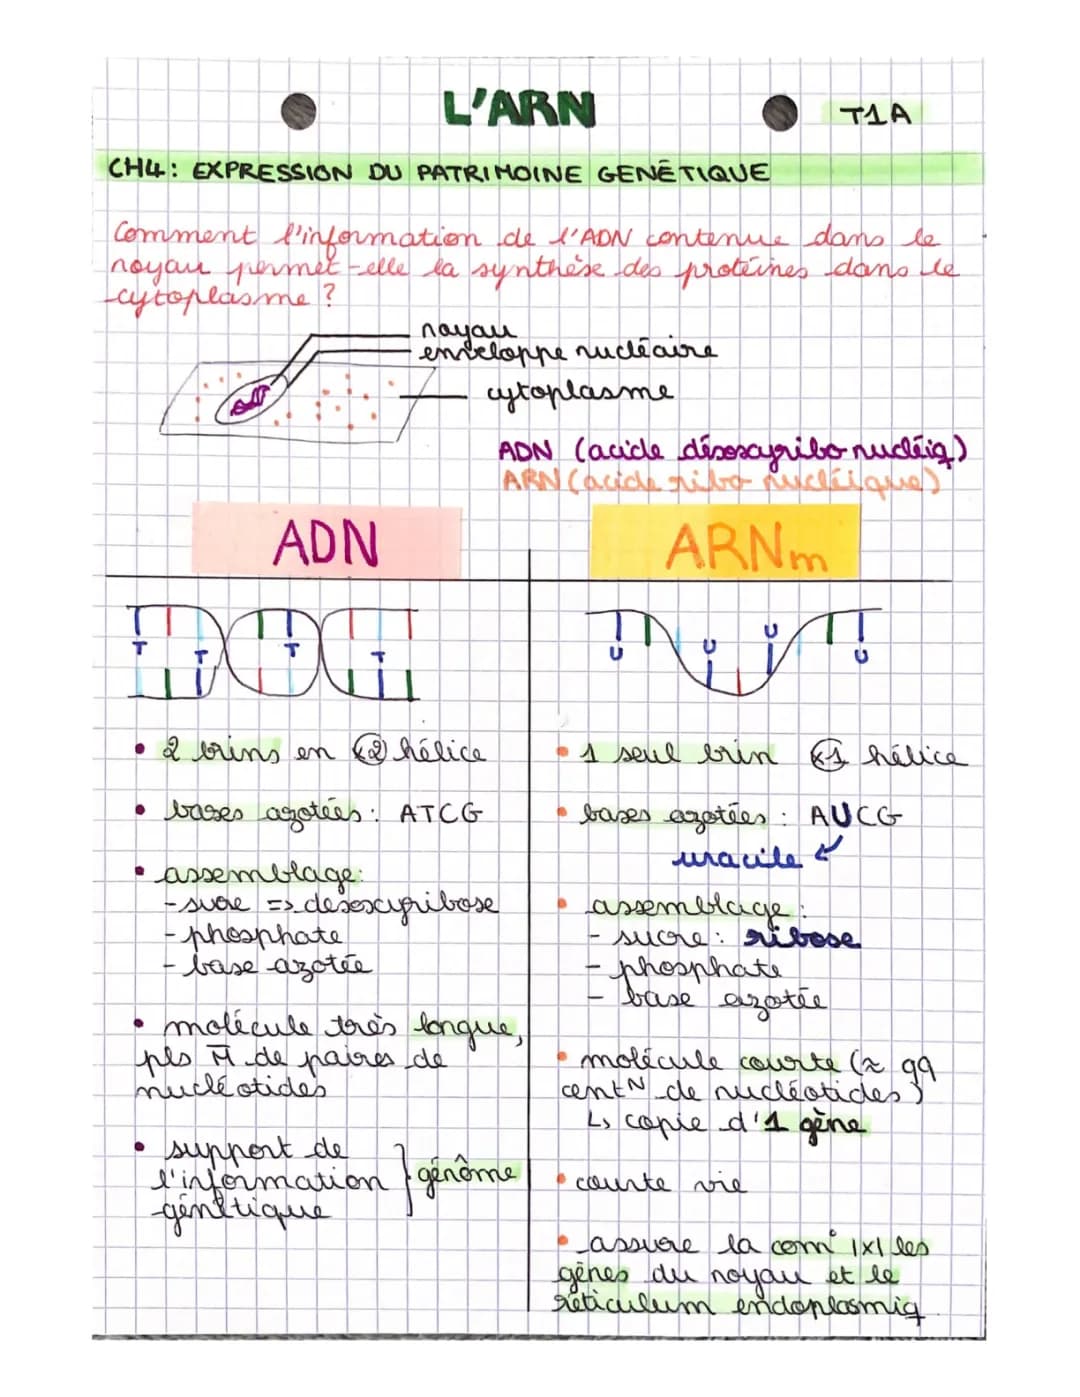 L'ARN
T1A
CH4: EXPRESSION DU PATRIMOINE GENÉTIQUE
Comment l'information de l'ADN contenue dans le
noyau permet-elle la synthèse des protéines dans le
cytoplasme ?
noyau
enveloppe nucléaire
cytoplasme
ADN (acide désoxyribo nucléiq)
ARN (acide ribo nucléique)
ADN
T T T T
• 2 brins en x2 hélice
• bases azotées : ATCG
• assemblage:
- sucre => desoxyribose
- phosphate
- base azotée
• molécule très longue,
pls M de paires de
nucléotides
• support de
l'information } génôme
génétique
ARNm
U U U U
• 1 seul brin x1 hélice
• bases azotées : AUCG
uracile
• assemblage :
- sucre : ribose
- phosphate
- base azotée
• molécule courte (≈ qq
centN de nucléotides)
↳ copie d'1 gène
• courte vie
• assure la com° |x| les
gènes du noyau et le
réticulum endoplasmiq